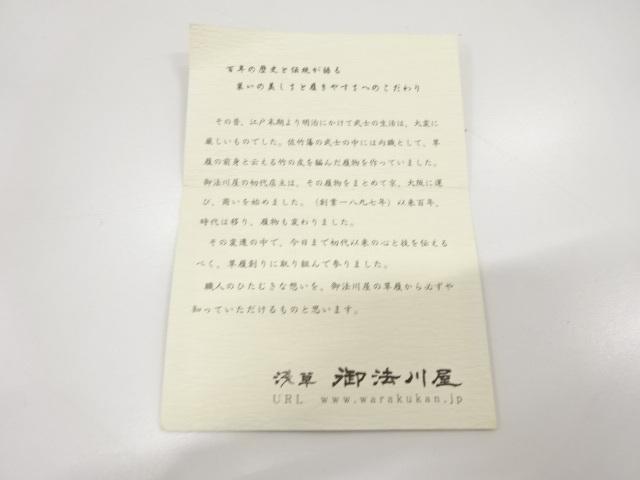 百年の歴史と伝統が語る
装いの美しさと履きやすさへのこだわり
その昔、江戸末期より明治にかけて武士の生活は、大変に
厳しいものでした。佐竹藩の武士の中には内職として、草
履の前身と云える竹の皮を編んだ履物を作っていました。
御法川屋の初代店主は、その履物をまとめて京、大阪に運
び、商いを始めました。(創業一八九七年)以来百年、
時代は移り、履物も変わりました。
その変遷の中で、今日まで初代以来の心と技を伝える
べく、草履創りに取り組んで参りました。
職人のひたむきな想いを、御法川屋の草履から必ずや
知っていただけるものと思います。
浅草 御法川屋
URL www.warakukan.jp